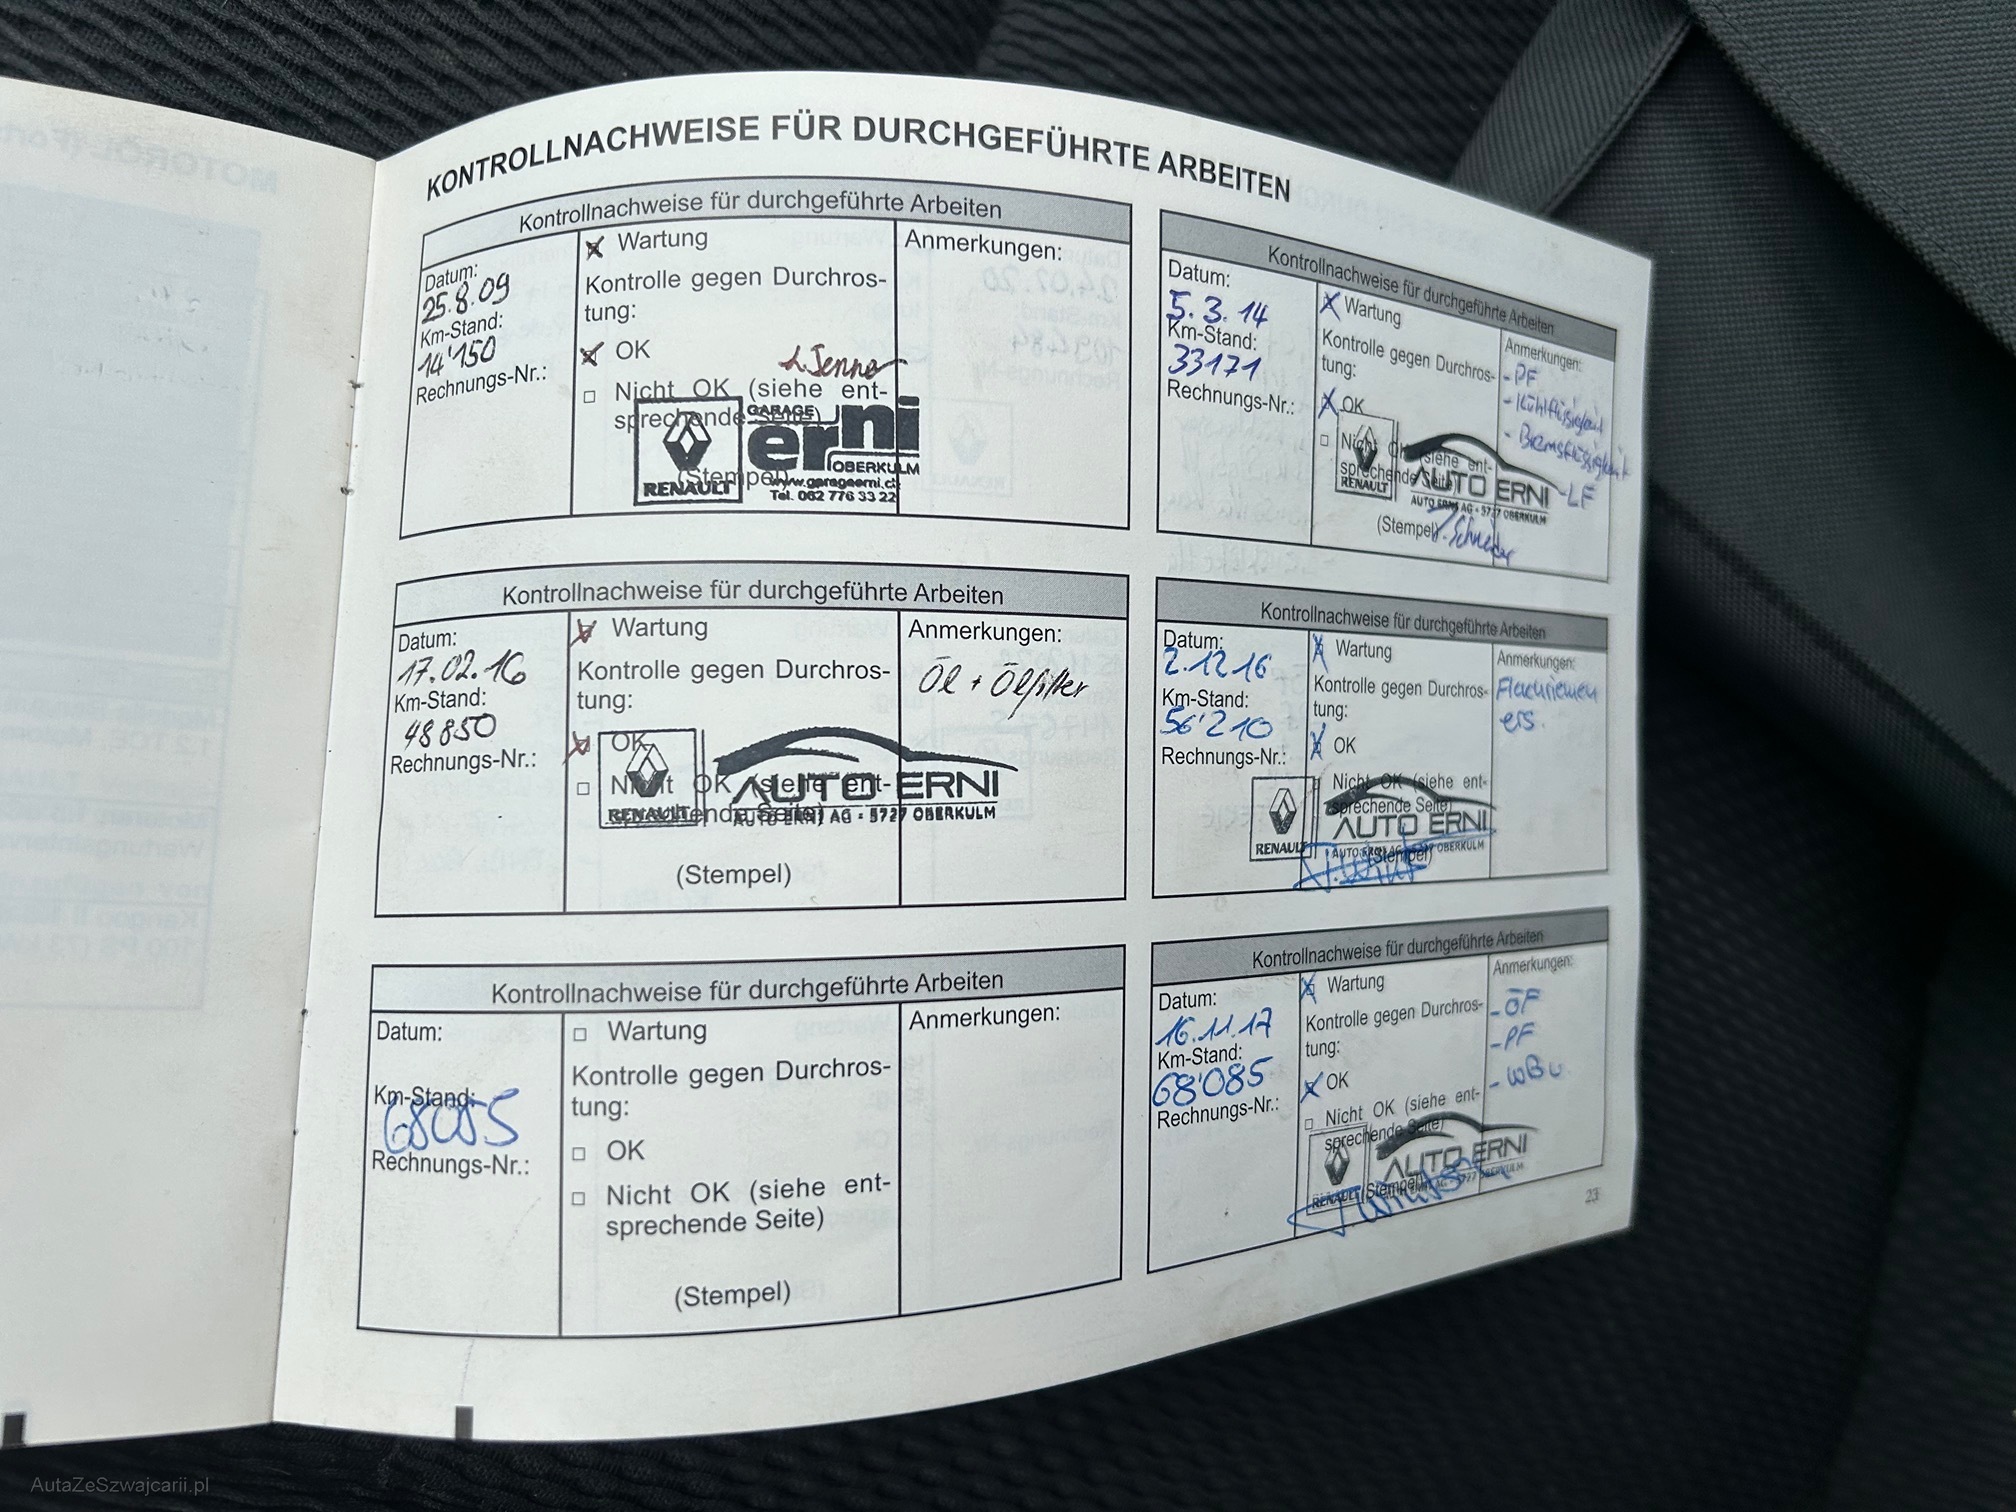 KONTROLLNACHWEISE FÜR DURCHGEFÜHRTE ARBEITEN
Kontrollnachweise für durchgeführte Arbeiten
Datum:
25.8.09
Km-Stand:
14'150
Rechnungs-Nr.:
Wartung
Kontrolle gegen Durchros-
tung:
OK
Nicht OK (siehe ent-
sprechende Seite)
(Stempel)
GARAGE
erni
OBERKULM
RENAULT
www.garageerni.ch
Tel. 062 776 33 22
Anmerkungen:
Kontrollnachweise für durchgeführte Arbeiten
Datum:
5.3.14
Km-Stand:
33171
Rechnungs-Nr.:
Wartung
Kontrolle gegen Durchros-
tung:
OK
Nicht OK (siehe ent-
sprechende Seite)
RENAULT
AUTO ERNI
AUTO ERNI AG - 5727 OBERKULM
(Stempel)
Anmerkungen:
- PF
- Kühlflüssigkeit
- Bremsflüssigkeit
- LF
Kontrollnachweise für durchgeführte Arbeiten
Datum:
17.02.16
Km-Stand:
48850
Rechnungs-Nr.:
Wartung
Kontrolle gegen Durchros-
tung:
OK
Nicht OK (siehe ent-
sprechende Seite)
RENAULT
AUTO ERNI
AUTO ERNI AG - 5727 OBERKULM
(Stempel)
Anmerkungen:
Öl + Ölfilter
Kontrollnachweise für durchgeführte Arbeiten
Datum:
2.12.16
Km-Stand:
56'210
Rechnungs-Nr.:
Wartung
Kontrolle gegen Durchros-
tung:
OK
Nicht OK (siehe ent-
sprechende Seite)
RENAULT
AUTO ERNI
AUTO ERNI AG - 5727 OBERKULM
(Stempel)
Anmerkungen:
Flachriemen
ers.
Kontrollnachweise für durchgeführte Arbeiten
Datum:
Km-Stand:
68085
Rechnungs-Nr.:
Wartung
Kontrolle gegen Durchros-
tung:
OK
Nicht OK (siehe ent-
sprechende Seite)
(Stempel)
Anmerkungen:
Kontrollnachweise für durchgeführte Arbeiten
Datum:
16.11.17
Km-Stand:
68'085
Rechnungs-Nr.:
Wartung
Kontrolle gegen Durchros-
tung:
OK
Nicht OK (siehe ent-
sprechende Seite)
RENAULT
AUTO ERNI
AUTO ERNI AG - 5727 OBERKULM
(Stempel)
Anmerkungen:
- ÖF
- PF
23
AutaZeSzwajcarii.pl